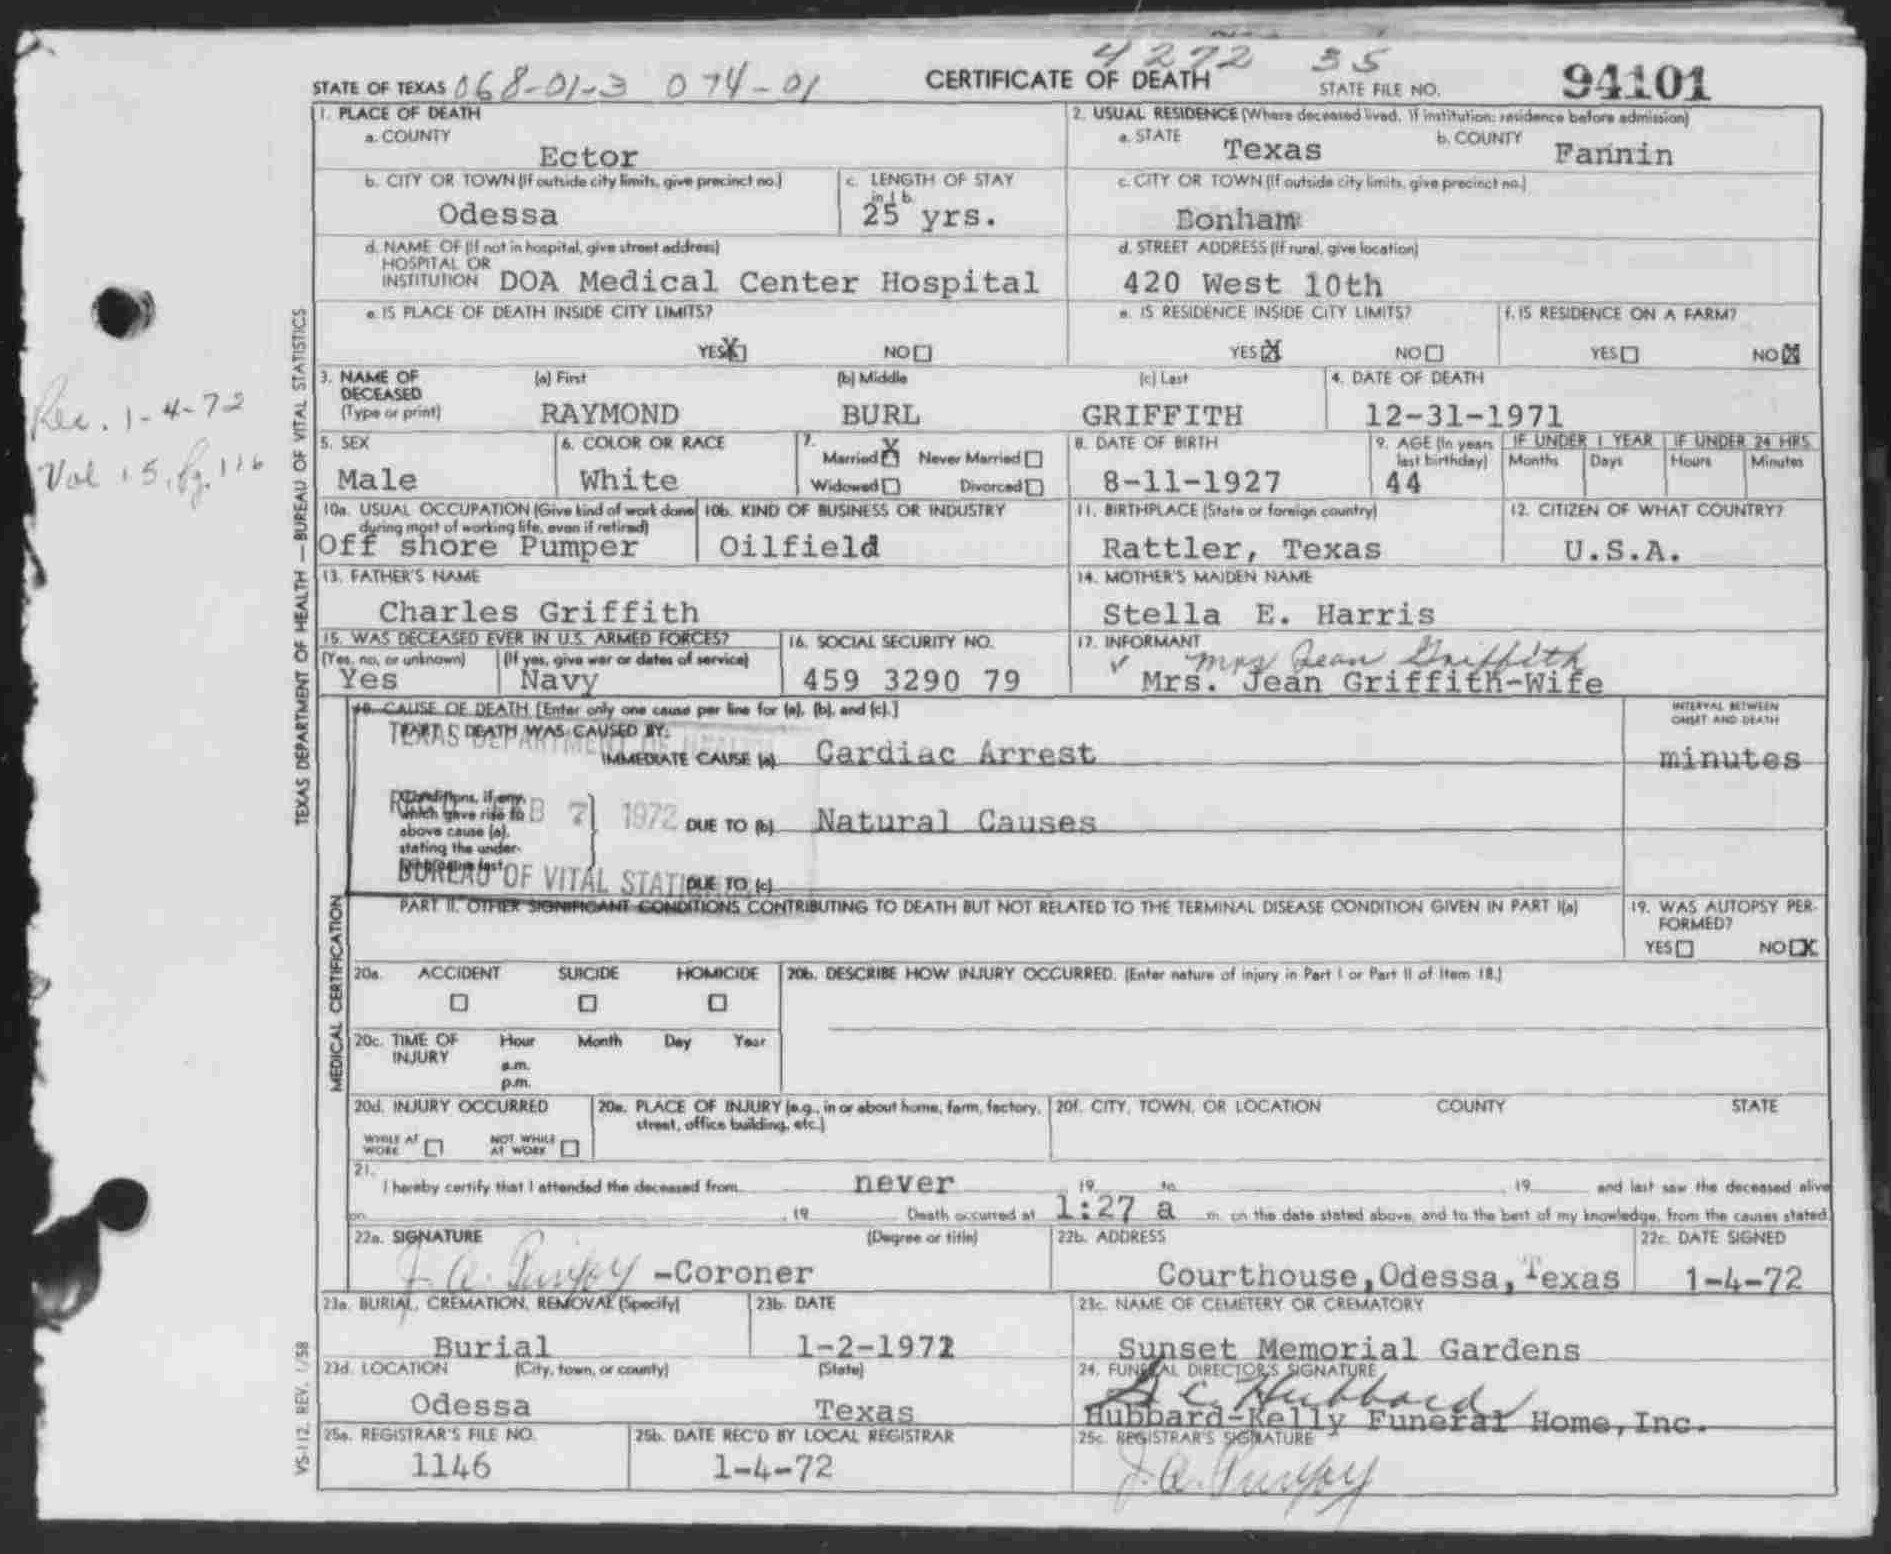 4272 35
STATE OF TEXAS 068-01-3 074-01 CERTIFICATE OF DEATH STATE FILE NO. 94101
1. PLACE OF DEATH
a. COUNTY
Ector
2. USUAL RESIDENCE (Where deceased lived. If institution: residence before admission)
a. STATE Texas b. COUNTY Fannin
b. CITY OR TOWN (If outside city limits, give precinct no.)
Odessa
c. LENGTH OF STAY
in 1b
25 yrs.
c. CITY OR TOWN (If outside city limits, give precinct no.)
Bonham
d. NAME OF (If not in hospital, give street address)
HOSPITAL OR
INSTITUTION DOA Medical Center Hospital
d. STREET ADDRESS (If rural, give location)
420 West 10th
e. IS PLACE OF DEATH INSIDE CITY LIMITS?
YES X NO
e. IS RESIDENCE INSIDE CITY LIMITS?
YES X NO
f. IS RESIDENCE ON A FARM?
YES NO X
3. NAME OF DECEASED (Type or print)
(a) First (b) Middle (c) Last
RAYMOND BURL GRIFFITH
4. DATE OF DEATH
12-31-1971
Rec. 1-4-72
Vol 15, pg. 116
5. SEX
Male
6. COLOR OR RACE
White
7.
Married X Never Married
Widowed Divorced
8. DATE OF BIRTH
8-11-1927
9. AGE (In years last birthday)
44
IF UNDER 1 YEAR IF UNDER 24 HRS.
Months Days Hours Minutes
10a. USUAL OCCUPATION (Give kind of work done
during most of working life, even if retired)
Off shore Pumper
10b. KIND OF BUSINESS OR INDUSTRY
Oilfield
11. BIRTHPLACE (State or foreign country)
Rattler, Texas
12. CITIZEN OF WHAT COUNTRY?
U.S.A.
13. FATHER'S NAME
Charles Griffith
14. MOTHER'S MAIDEN NAME
Stella E. Harris
15. WAS DECEASED EVER IN U.S. ARMED FORCES?
(Yes, no, or unknown) (If yes, give war or dates of service)
Yes Navy
16. SOCIAL SECURITY NO.
459 3290 79
17. INFORMANT
Mrs Jean Griffith
Mrs. Jean Griffith-Wife
18. CAUSE OF DEATH [Enter only one cause per line for (a), (b), and (c).]
INTERVAL BETWEEN
ONSET AND DEATH
PART I. DEATH WAS CAUSED BY:
TEXAS DEPARTMENT OF HEALTH
IMMEDIATE CAUSE (a) Cardiac Arrest minutes
Conditions, if any, which gave rise to above cause (a), stating the under-
REC'D FEB 7 1972
DUE TO (b) Natural Causes
BUREAU OF VITAL STATI
DUE TO (c)
PART II. OTHER SIGNIFICANT CONDITIONS CONTRIBUTING TO DEATH BUT NOT RELATED TO THE TERMINAL DISEASE CONDITION GIVEN IN PART I(a)
19. WAS AUTOPSY PER-
FORMED?
YES NO X
20a. ACCIDENT SUICIDE HOMICIDE
20b. DESCRIBE HOW INJURY OCCURRED. (Enter nature of injury in Part I or Part II of Item 18.)
20c. TIME OF INJURY Hour Month Day Year
a.m.
p.m.
20d. INJURY OCCURRED
WHILE AT WORK NOT WHILE AT WORK
20e. PLACE OF INJURY (e.g., in or about home, farm, factory,
street, office building, etc.)
20f. CITY, TOWN, OR LOCATION COUNTY STATE
21.
I hereby certify that I attended the deceased from never 19 to , 19 and last saw the deceased alive
on , 19 Death occurred at 1:27 a m. on the date stated above, and to the best of my knowledge, from the causes stated.
22a. SIGNATURE (Degree or title)
J. A. Purifoy -Coroner
22b. ADDRESS
Courthouse, Odessa, Texas
22c. DATE SIGNED
1-4-72
23a. BURIAL, CREMATION, REMOVAL (Specify)
Burial
23b. DATE
1-2-1972
23c. NAME OF CEMETERY OR CREMATORY
Sunset Memorial Gardens
23d. LOCATION (City, town, or county) (State)
Odessa Texas
24. FUNERAL DIRECTOR'S SIGNATURE
C. Hubbard
Hubbard-Kelly Funeral Home, Inc.
25a. REGISTRAR'S FILE NO.
1146
25b. DATE REC'D BY LOCAL REGISTRAR
1-4-72
25c. REGISTRAR'S SIGNATURE
J. A. Purifoy
TEXAS DEPARTMENT OF HEALTH — BUREAU OF VITAL STATISTICS
MEDICAL CERTIFICATION
VS-112, REV. 1/58